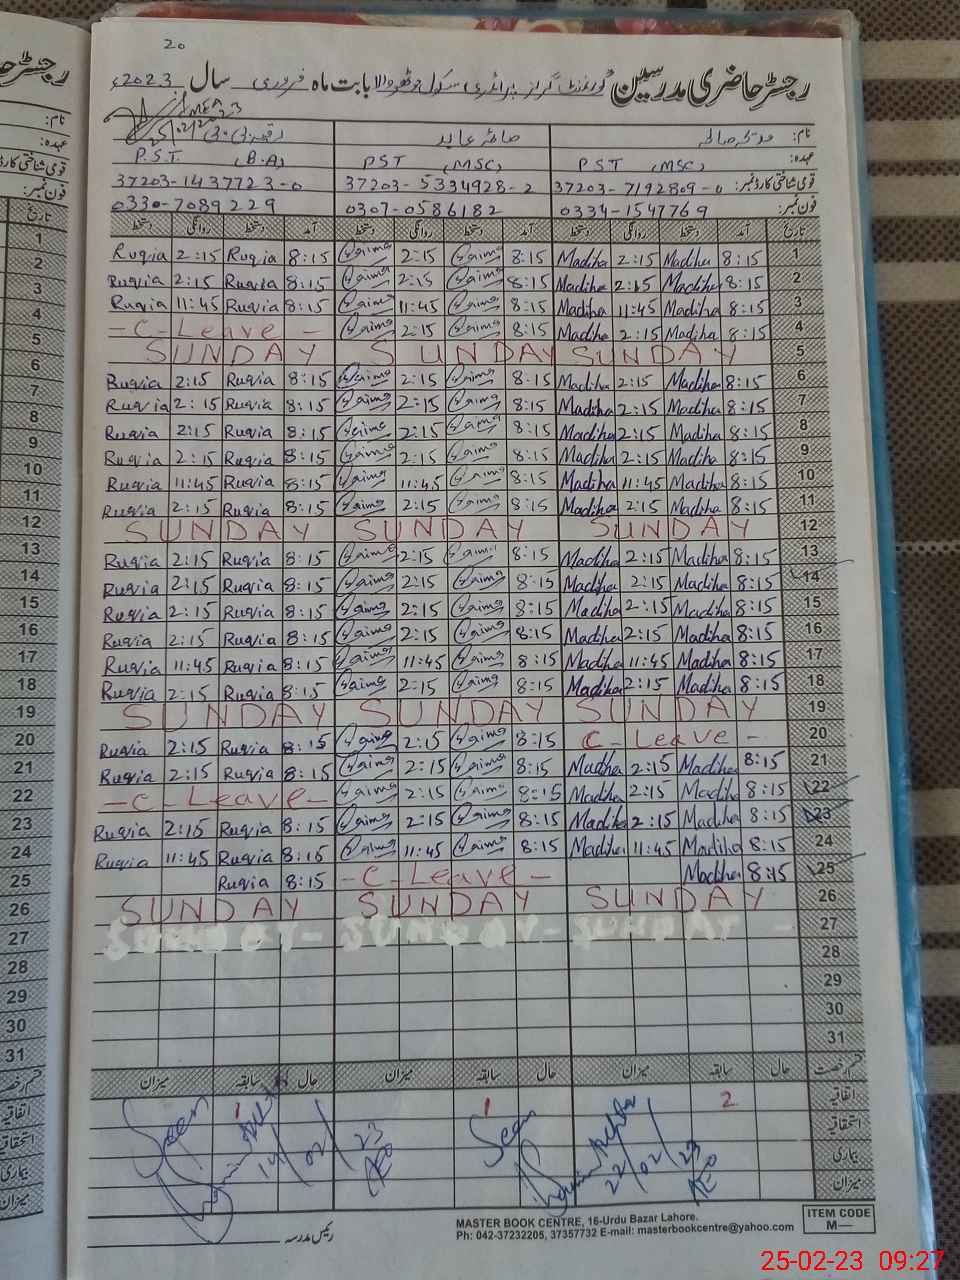 20
رجسٹر حاضری مدرسین گورنمنٹ گرلز پرائمری سکول جوٹھہ والا بابت ماہ فروری سال 2023ء
نام: مدیحہ صالحہ صائمہ عابد رقیہ بی بی
عہدہ: PST (MSC) PST (MSC) P.S.T. (B.A)
قومی شناختی کارڈ نمبر: 37203-7192809-0 37203-5334928-2 37203-1437723-0
فون نمبر: 0334-1547769 0307-0586182 0330-7089229
تاریخ آمد دستخط روانگی دستخط آمد دستخط روانگی دستخط آمد دستخط روانگی دستخط
Ruqia 2:15 Ruqia 8:15 Saima 2:15 Saima 8:15 Madiha 2:15 Madiha 8:15 1
Ruqia 2:15 Ruqia 8:15 Saima 2:15 Saima 8:15 Madiha 2:15 Madiha 8:15 2
Ruqia 11:45 Ruqia 8:15 Saima 11:45 Saima 8:15 Madiha 11:45 Madiha 8:15 3
- C - Leave - Saima 2:15 Saima 8:15 Madiha 2:15 Madiha 8:15 4
SUNDAY SUNDAY SUNDAY 5
Ruqia 2:15 Ruqia 8:15 Saima 2:15 Saima 8:15 Madiha 2:15 Madiha 8:15 6
Ruqia 2:15 Ruqia 8:15 Saima 2:15 Saima 8:15 Madiha 2:15 Madiha 8:15 7
Ruqia 2:15 Ruqia 8:15 Saima 2:15 Saima 8:15 Madiha 2:15 Madiha 8:15 8
Ruqia 2:15 Ruqia 8:15 Saima 2:15 Saima 8:15 Madiha 2:15 Madiha 8:15 9
Ruqia 11:45 Ruqia 8:15 Saima 11:45 Saima 8:15 Madiha 11:45 Madiha 8:15 10
Ruqia 2:15 Ruqia 8:15 Saima 2:15 Saima 8:15 Madiha 2:15 Madiha 8:15 11
SUNDAY SUNDAY SUNDAY 12
Ruqia 2:15 Ruqia 8:15 Saima 2:15 Saima 8:15 Madiha 2:15 Madiha 8:15 13
Ruqia 2:15 Ruqia 8:15 Saima 2:15 Saima 8:15 Madiha 2:15 Madiha 8:15 14
Ruqia 2:15 Ruqia 8:15 Saima 2:15 Saima 8:15 Madiha 2:15 Madiha 8:15 15
Ruqia 2:15 Ruqia 8:15 Saima 2:15 Saima 8:15 Madiha 2:15 Madiha 8:15 16
Ruqia 11:45 Ruqia 8:15 Saima 11:45 Saima 8:15 Madiha 11:45 Madiha 8:15 17
Ruqia 2:15 Ruqia 8:15 Saima 2:15 Saima 8:15 Madiha 2:15 Madiha 8:15 18
SUNDAY SUNDAY SUNDAY 19
Ruqia 2:15 Ruqia 8:15 Saima 2:15 Saima 8:15 C - Leave - 20
Ruqia 2:15 Ruqia 8:15 Saima 2:15 Saima 8:15 Madiha 2:15 Madiha 8:15 21
- C - Leave - Saima 2:15 Saima 8:15 Madiha 2:15 Madiha 8:15 22
Ruqia 2:15 Ruqia 8:15 Saima 2:15 Saima 8:15 Madiha 2:15 Madiha 8:15 23
Ruqia 11:45 Ruqia 8:15 Saima 11:45 Saima 8:15 Madiha 11:45 Madiha 8:15 24
Ruqia 8:15 - C - Leave - Madiha 8:15 25
SUNDAY SUNDAY SUNDAY 26
SUNDAY - SUNDAY - SUNDAY - 27
28
29
30
31
قسم رخصت حال سابقہ میزان حال سابقہ میزان حال سابقہ میزان
اتفاقیہ 2 1 1
استحقاقیہ
بیماری
میزان
Seen 14/02/23 AEO
Seen 22/02/23 AEO
رئیس مدرسہ
MASTER BOOK CENTRE, 16-Urdu Bazar Lahore.
Ph: 042-37232205, 37357732 E-mail: masterbookcentre@yahoo.com
ITEM CODE
M—
25-02-23 09:27